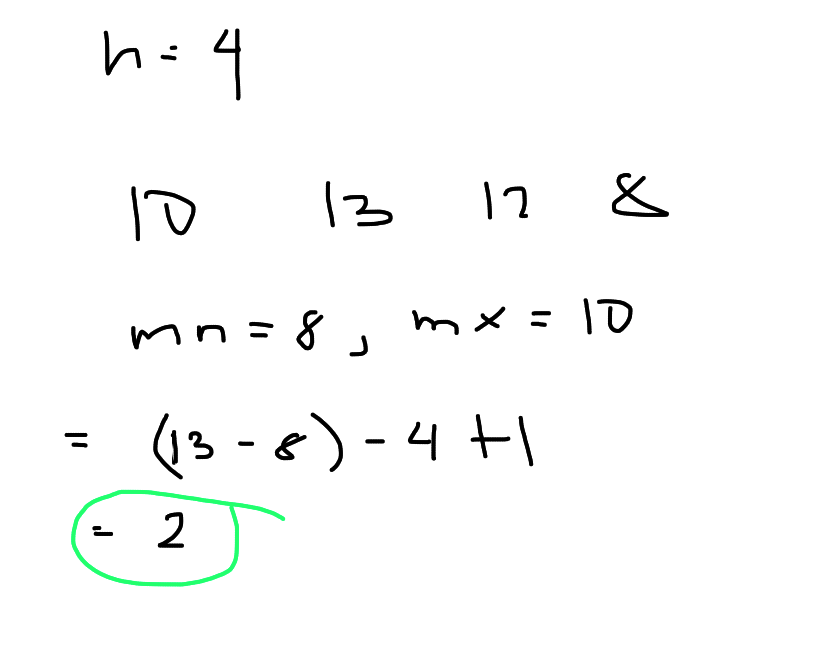 n = 4
10 13 12 8
mn = 8, mx = 10
= (13 - 8) - 4 + 1
= 2